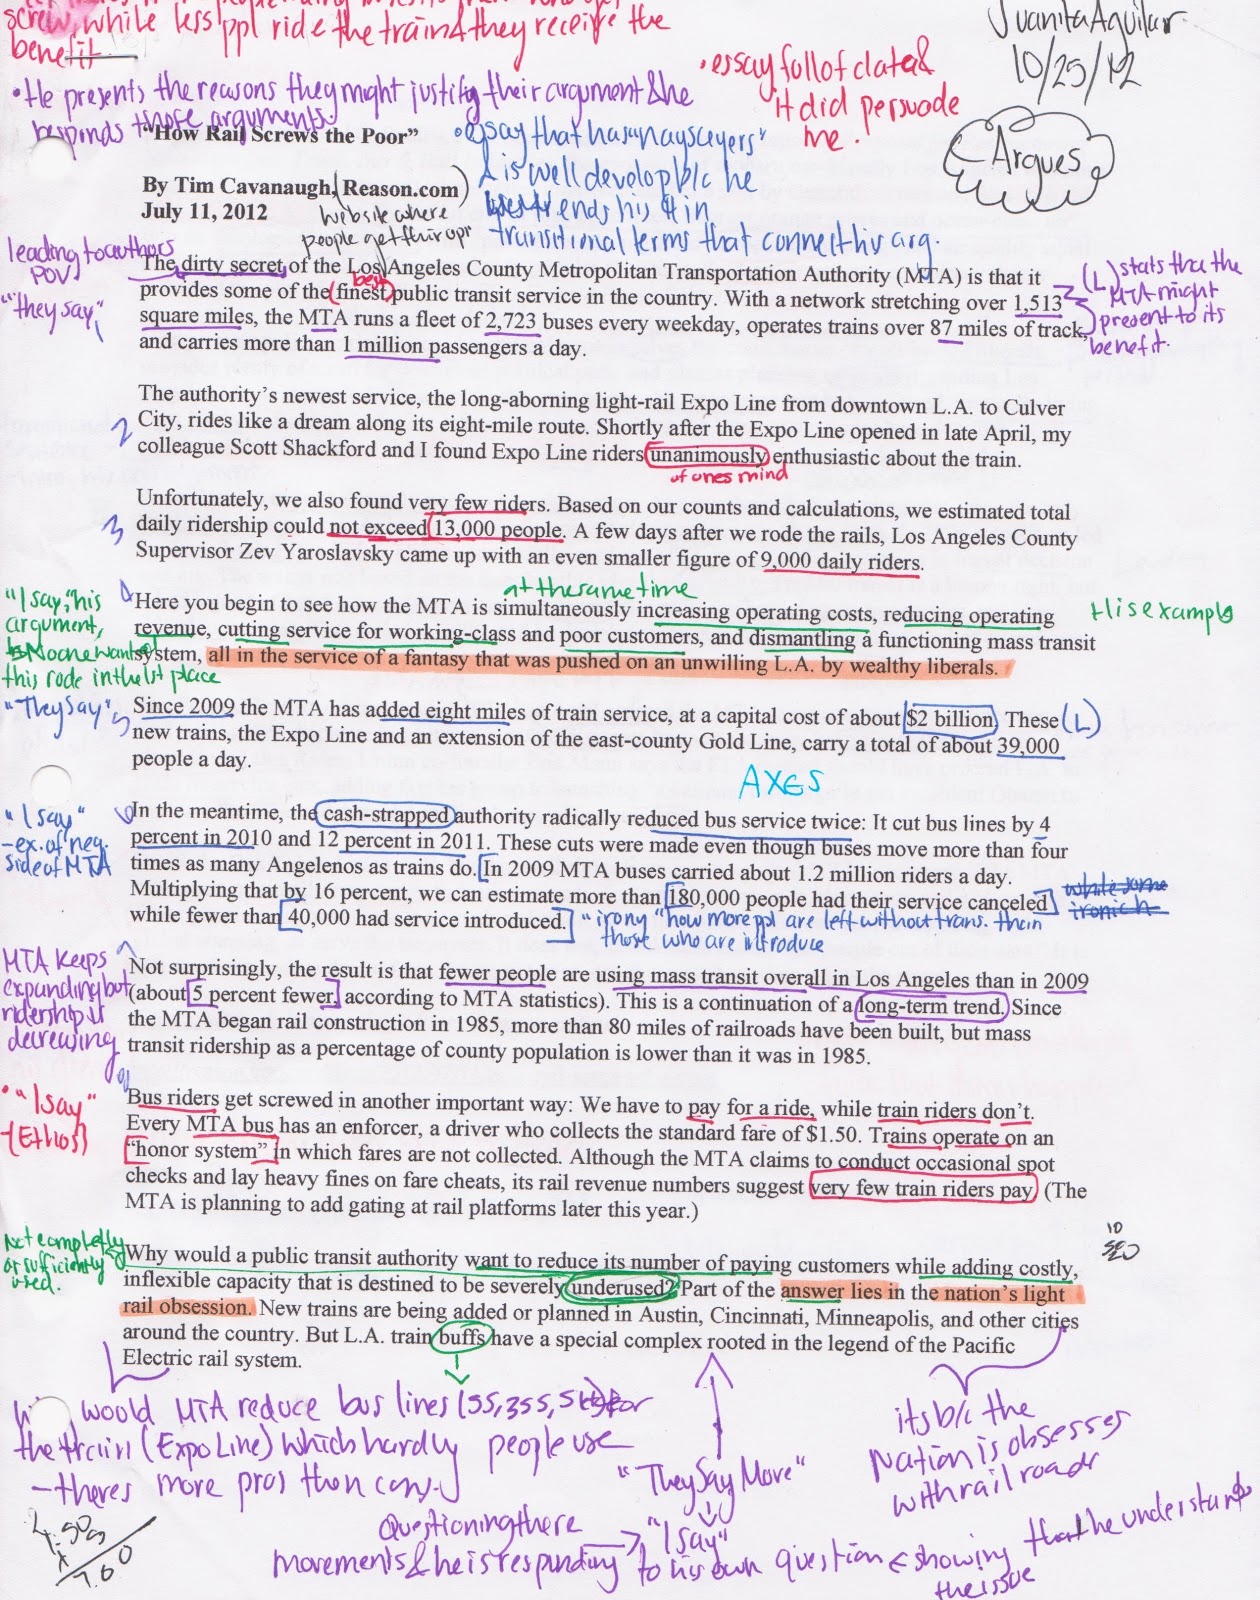 screw, while less ppl ride the train & they receive the
benefit
Juanita Aguilar
10/25/12
• essay full of data &
it did persuade
me!
• He presents the reasons they might justify their argument & he
responds those arguments.
Argues
"How Rail Screws the Poor"
• essay that has "naysayers"
& is well develop b/c he
ends his # in
transitional terms that connect his arg.
By Tim Cavanaugh, Reason.com
July 11, 2012
website where
people get their op"
leading to authors
POV
"they say"
The dirty secret of the Los Angeles County Metropolitan Transportation Authority (MTA) is that it
best
provides some of the finest public transit service in the country. With a network stretching over 1,513
square miles, the MTA runs a fleet of 2,723 buses every weekday, operates trains over 87 miles of track,
and carries more than 1 million passengers a day.
(L) stats tha the
MTA might
present to its
benefit.
The authority's newest service, the long-aborning light-rail Expo Line from downtown L.A. to Culver
2 City, rides like a dream along its eight-mile route. Shortly after the Expo Line opened in late April, my
colleague Scott Shackford and I found Expo Line riders unanimously enthusiastic about the train.
of ones mind
Unfortunately, we also found very few riders. Based on our counts and calculations, we estimated total
3 daily ridership could not exceed 13,000 people. A few days after we rode the rails, Los Angeles County
Supervisor Zev Yaroslavsky came up with an even smaller figure of 9,000 daily riders.
at the same time
"I say," his
argument,
No one wanted
this rode in the 1st place
4 Here you begin to see how the MTA is simultaneously increasing operating costs, reducing operating
revenue, cutting service for working-class and poor customers, and dismantling a functioning mass transit
system, all in the service of a fantasy that was pushed on an unwilling L.A. by wealthy liberals.
His example
"They Say"
5 Since 2009 the MTA has added eight miles of train service, at a capital cost of about $2 billion. These (L)
new trains, the Expo Line and an extension of the east-county Gold Line, carry a total of about 39,000
people a day.
AXES
"I say"
- ex. of neg.
side of MTA
6 In the meantime, the cash-strapped authority radically reduced bus service twice: It cut bus lines by 4
percent in 2010 and 12 percent in 2011. These cuts were made even though buses move more than four
times as many Angelenos as trains do. In 2009 MTA buses carried about 1.2 million riders a day.
Multiplying that by 16 percent, we can estimate more than 180,000 people had their service canceled
while fewer than 40,000 had service introduced.
"irony" how more ppl are left without trans. than
those who are introduce
MTA keeps
expanding but
ridership is
decreasing
Not surprisingly, the result is that fewer people are using mass transit overall in Los Angeles than in 2009
(about 5 percent fewer, according to MTA statistics). This is a continuation of a long-term trend. Since
the MTA began rail construction in 1985, more than 80 miles of railroads have been built, but mass
transit ridership as a percentage of county population is lower than it was in 1985.
• "I say"
- (Ethos)
8 Bus riders get screwed in another important way: We have to pay for a ride, while train riders don't.
Every MTA bus has an enforcer, a driver who collects the standard fare of $1.50. Trains operate on an
"honor system" in which fares are not collected. Although the MTA claims to conduct occasional spot
checks and lay heavy fines on fare cheats, its rail revenue numbers suggest very few train riders pay. (The
MTA is planning to add gating at rail platforms later this year.)
Not completly
or sufficiently
used.
Why would a public transit authority want to reduce its number of paying customers while adding costly,
inflexible capacity that is destined to be severely underused? Part of the answer lies in the nation's light
rail obsession. New trains are being added or planned in Austin, Cincinnati, Minneapolis, and other cities
around the country. But L.A. train buffs have a special complex rooted in the legend of the Pacific
Electric rail system.
would MTA reduce bus lines for
the train (Expo Line) which hardly people use
- theres more pros than cons
"They Say Move"
"I say"
Questioning there
movements & he is responding to his own question & showing that he understands
the issue
its b/c the
Nation is obsesses
with rail roads